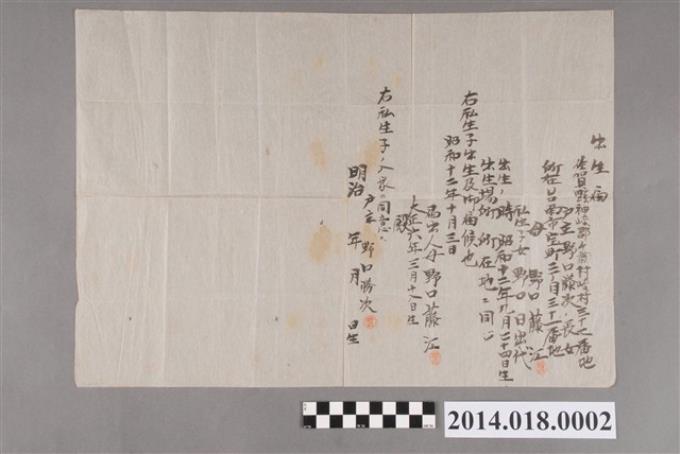 出生届
佐賀縣神埼郡千歳村崎村三十七番地
戸主野口藤次長女
所在台南市宝町三丁目三十一番地
母 野口藤江
私生子女 野口日出代
出生ノ時 昭和十二年九月二十四日生
出生場所 所在地ニ同シ
右私生子出生及御届候也
昭和十二年十月三日
届出人母野口藤江
大正六年三月十八日生
殿
右私生子ノ入家ニ同意ス
戸主 野口勝次
明治 年 月 日生
2014.018.0002